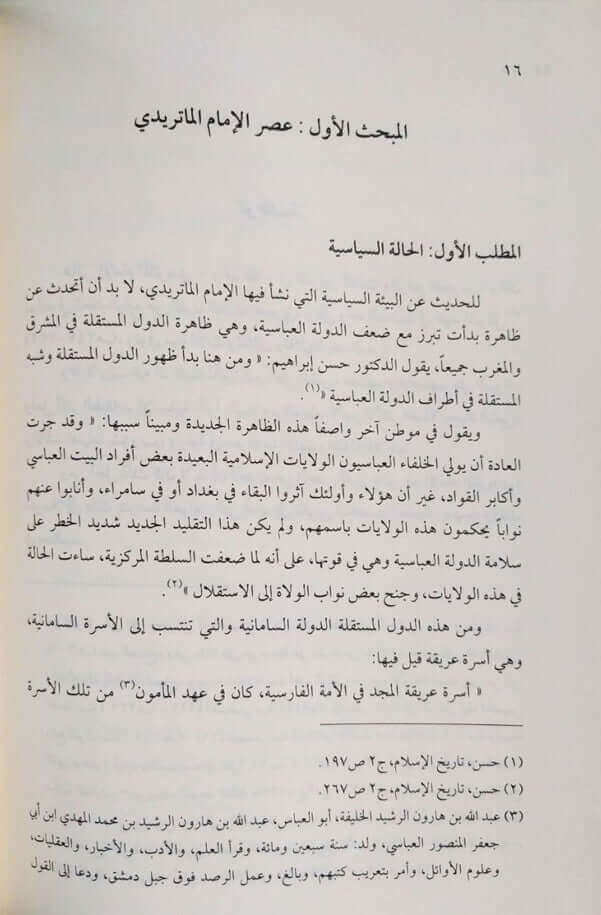 ١٦
المبحث الأول : عصر الإمام الماتريدي
المطلب الأول: الحالة السياسية
للحديث عن البيئة السياسية التي نشأ فيها الإمام الماتريدي، لا بد أن أتحدث عن
ظاهرة بدأت تبرز مع ضعف الدولة العباسية، وهي ظاهرة الدول المستقلة في المشرق
والمغرب جميعاً، يقول الدكتور حسن إبراهيم: « ومن هنا بدأ ظهور الدول المستقلة وشبه
المستقلة في أطراف الدولة العباسية »(١).
ويقول في موطن آخر واصفاً هذه الظاهرة الجديدة ومبيناً سببها: « وقد جرت
العادة أن يولي الخلفاء العباسيون الولايات الإسلامية البعيدة بعض أفراد البيت العباسي
وأكابر القواد، غير أن هؤلاء وأولئك آثروا البقاء في بغداد أو في سامراء، وأنابوا عنهم
نواباً يحكمون هذه الولايات باسمهم، ولم يكن هذا التقليد الجديد شديد الخطر على
سلامة الدولة العباسية وهي في قوتها، على أنه لما ضعفت السلطة المركزية، ساءت الحالة
في هذه الولايات، وجنح بعض نواب الولاة إلى الاستقلال »(٢).
ومن هذه الدول المستقلة الدولة السامانية والتي تنتسب إلى الأسرة السامانية،
وهي أسرة عريقة قيل فيها:
« أسرة عريقة المجد في الأمة الفارسية، كان في عهد المأمون(٣) من تلك الأسرة
(١) حسن، تاريخ الإسلام، ج٢ ص١٩٧.
(٢) حسن، تاريخ الإسلام، ج٢ ص٢٦٧.
(٣) عبد الله بن هارون الرشيد الخليفة، أبو العباس، عبد الله بن هارون الرشيد بن محمد المهدي ابن أبي
جعفر المنصور العباسي، ولد: سنة سبعين ومائة، وقرأ العلم، والأدب، والأخبار، والعقليات،
وعلوم الأوائل، وأمر بتعريب كتبهم، وبالغ، وعمل الرصد فوق جبل دمشق، ودعا إلى القول